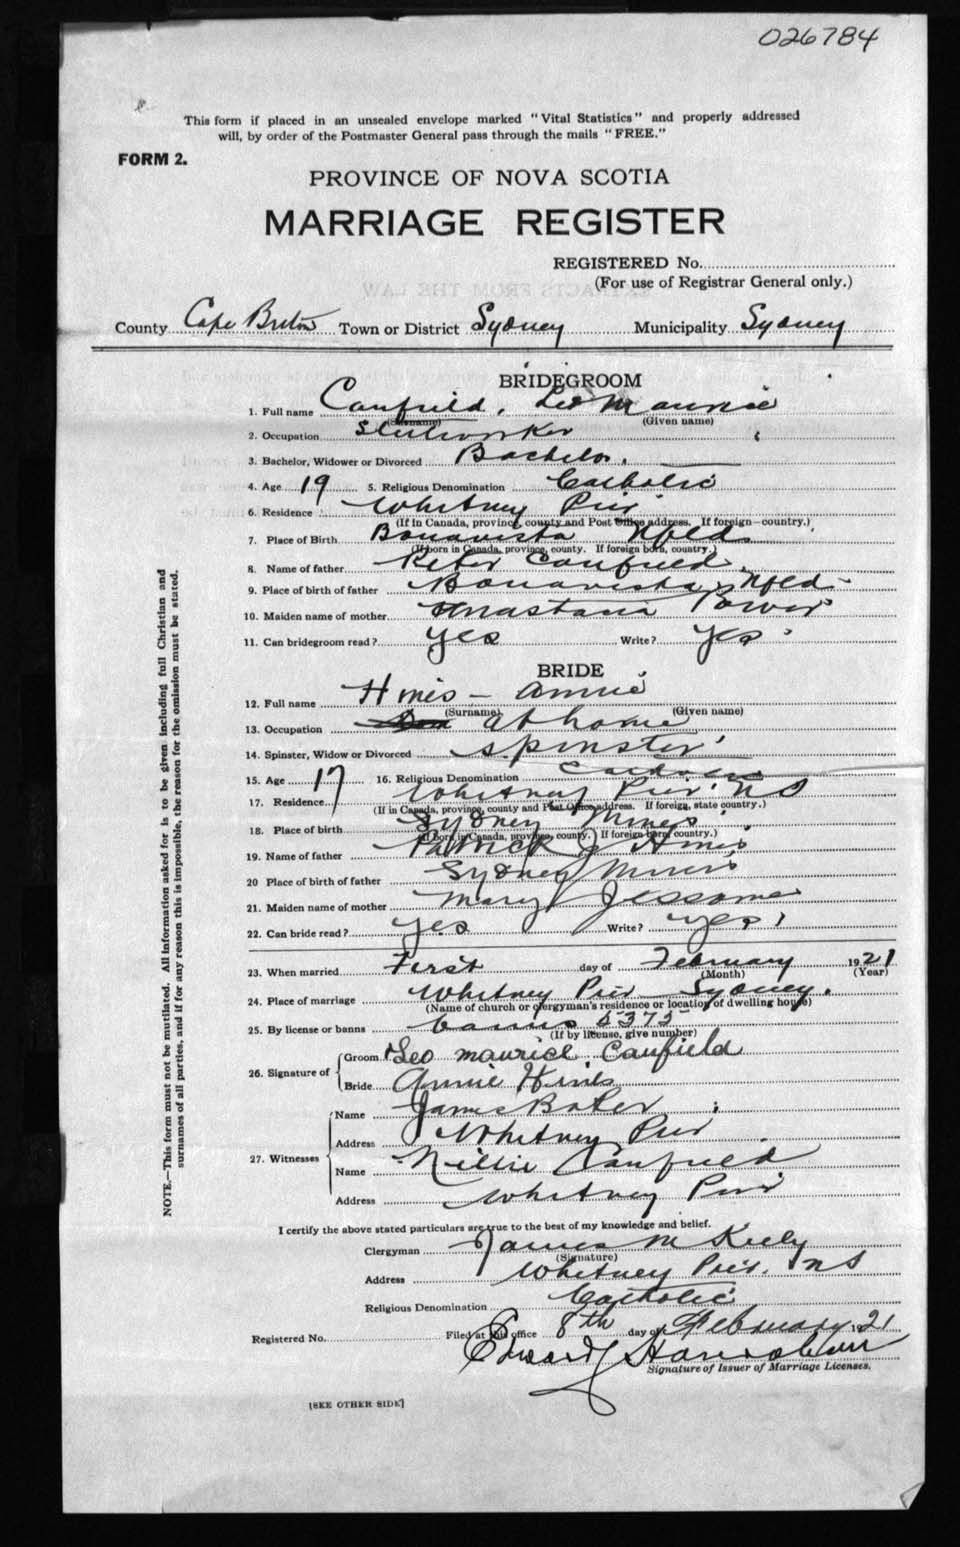 026784
This form if placed in an unsealed envelope marked "Vital Statistics" and properly addressed
will, by order of the Postmaster General pass through the mails "FREE."
FORM 2.
PROVINCE OF NOVA SCOTIA
MARRIAGE REGISTER
REGISTERED No.
(For use of Registrar General only.)
County Cape Breton Town or District Sydney Municipality Sydney
BRIDEGROOM
1. Full name Canfield, Leo Maurice
(Surname) (Given name)
2. Occupation Steelworker
3. Bachelor, Widower or Divorced Bachelor.
4. Age 19 5. Religious Denomination Catholic
6. Residence Whitney Pier
(If in Canada, province, county and Post Office address. If foreign—country.)
7. Place of Birth Bonavista Nfld
(If born in Canada, province, county. If foreign born, country.)
8. Name of father Peter Canfield
9. Place of birth of father Bonavista, Nfld
10. Maiden name of mother Anastatia Power
11. Can bridegroom read? Yes Write? Yes
BRIDE
12. Full name Hines - Annie
(Surname) (Given name)
13. Occupation at home
14. Spinster, Widow or Divorced Spinster
15. Age 17 16. Religious Denomination Catholic
17. Residence Whitney Pier. NS
(If in Canada, province, county and Post Office address. If foreign, state country.)
18. Place of birth Sydney Mines
(If born in Canada, province, county. If foreign born country.)
19. Name of father Patrick J Hines
20 Place of birth of father Sydney Mines
21. Maiden name of mother Mary Jessome
22. Can bride read? Yes Write? Yes
23. When married First day of February 1921
(Month) (Year)
24. Place of marriage Whitney Pier Sydney.
(Name of church or clergyman's residence or location of dwelling house)
25. By license or banns banns 5375
(If by license, give number)
26. Signature of Groom Leo Maurice Canfield
Bride Annie Hines
27. Witnesses Name James Baker
Address Whitney Pier
Name Nellie Canfield
Address Whitney Pier
I certify the above stated particulars are true to the best of my knowledge and belief.
Clergyman James M Kiely
(Signature)
Address Whitney Pier. NS
Religious Denomination Catholic
Registered No. Filed at this office 8th day of February 1921
Edward
Signature of Issuer of Marriage Licenses.
[SEE OTHER SIDE]
NOTE.—This form must not be mutilated. All information asked for is to be given including full Christian and
surnames of all parties, and if for any reason this is impossible, the reason for the omission must be stated.